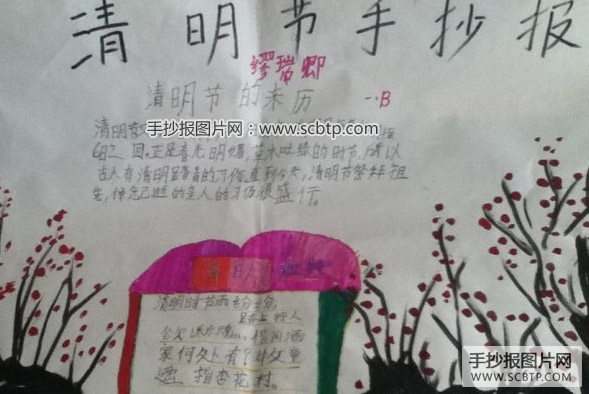 清明节手抄报
缪瑞卿
清明节的来历 一·B
清明节
手抄报图片网：www.scbtp.com
回。正是春光明媚，草木吐绿的时节，所以
古人有清明踏青的习俗直到今天，清明节祭拜祖
先，悼念己逝的亲人的习俗很盛行。
清明
清明时节雨纷纷，
路上行人
欲断魂。借问酒
家何处有？牧童
遥指杏花村。
手抄报图片网
WWW.SCBTP.COM